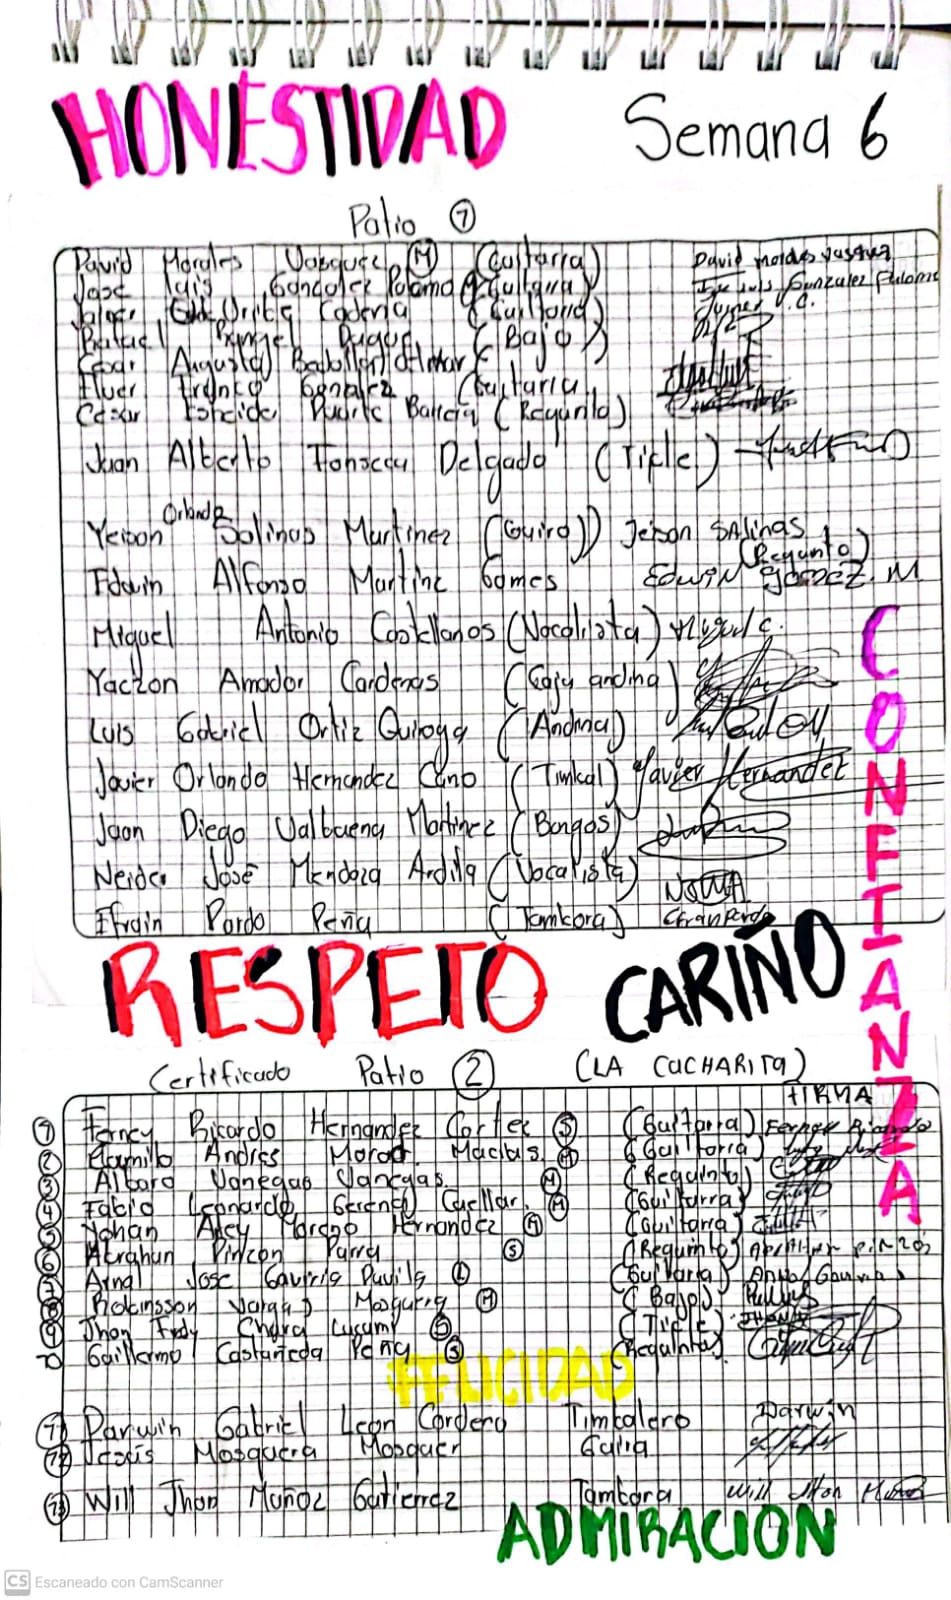 HONESTIDAD Semana 6
Patio 7
David Morales Vasquez M (Guitarra) David morales vasquez
Jose Luis Gonzalez Paloma (Guitarra) Jose Luis Gonzalez Paloma
Uribe Cadena (Guitarra)
Rafael Rangel Duque (Bajo)
Cesar Augusto
Elver Franco Gonzalez (Guitarra)
Cesar Duarte (Requinto)
Juan Alberto Fonseca Delgado (Tiple)
Yeison Orlando Salinas Martinez (Guiro)) Jeison SALinas
Edwin Alfonso Martinz Gomes (Requinto) Edwin gomez. M
Miguel Antonio Castellanos (Vocalista) Miguel c.
Yaczon Amador Cardenas (Caja andina)
Luis Gabriel Ortiz Quiroga (Andina)
Javier Orlando Hernandez Cano (Timbal) Javier Hernandez
Juan Diego Valbuena Martinez (Bongos)
Neider José Mendoza Ardila (Vocalista)
Efrain Pardo Peña (Tambora) Efran Pardo
CONFIANZA
RESPETO CARIÑO
Certificado Patio 2 (LA CUCHARITA)
FIRMA
1 Ferney Ricardo Hernandez Cortez S (Guitarra)
2 Camilo Andres Macias. M (Guitarra)
3 Albaro Vanegas Vanegas. M (Requinto)
4 Fabio Leonardo Cuellar. M (Guitarra)
5 Johan Arley Moreno Hernandez M (Guitarra)
6 Abrahan Pinzon Parra S (Requinto) Abraham Pinzón
7 Jose Gaviria (Guitarra)
8 Robinsson Vargas Mosquera M (Bajo)
9 Jhon Fredy S (Tiple)
10 Guillermo Castañeda Peña S (Requinto)
FELICIDAD
11 Darwin Gabriel Leon Cordero Timbalero Darwin
12 Jesús Mosquera Mosquer Guira
13 Will Jhon Muñoz Gutierrez Tambora Will Jhon Muñoz
ADMIRACION
CS Escaneado con CamScanner